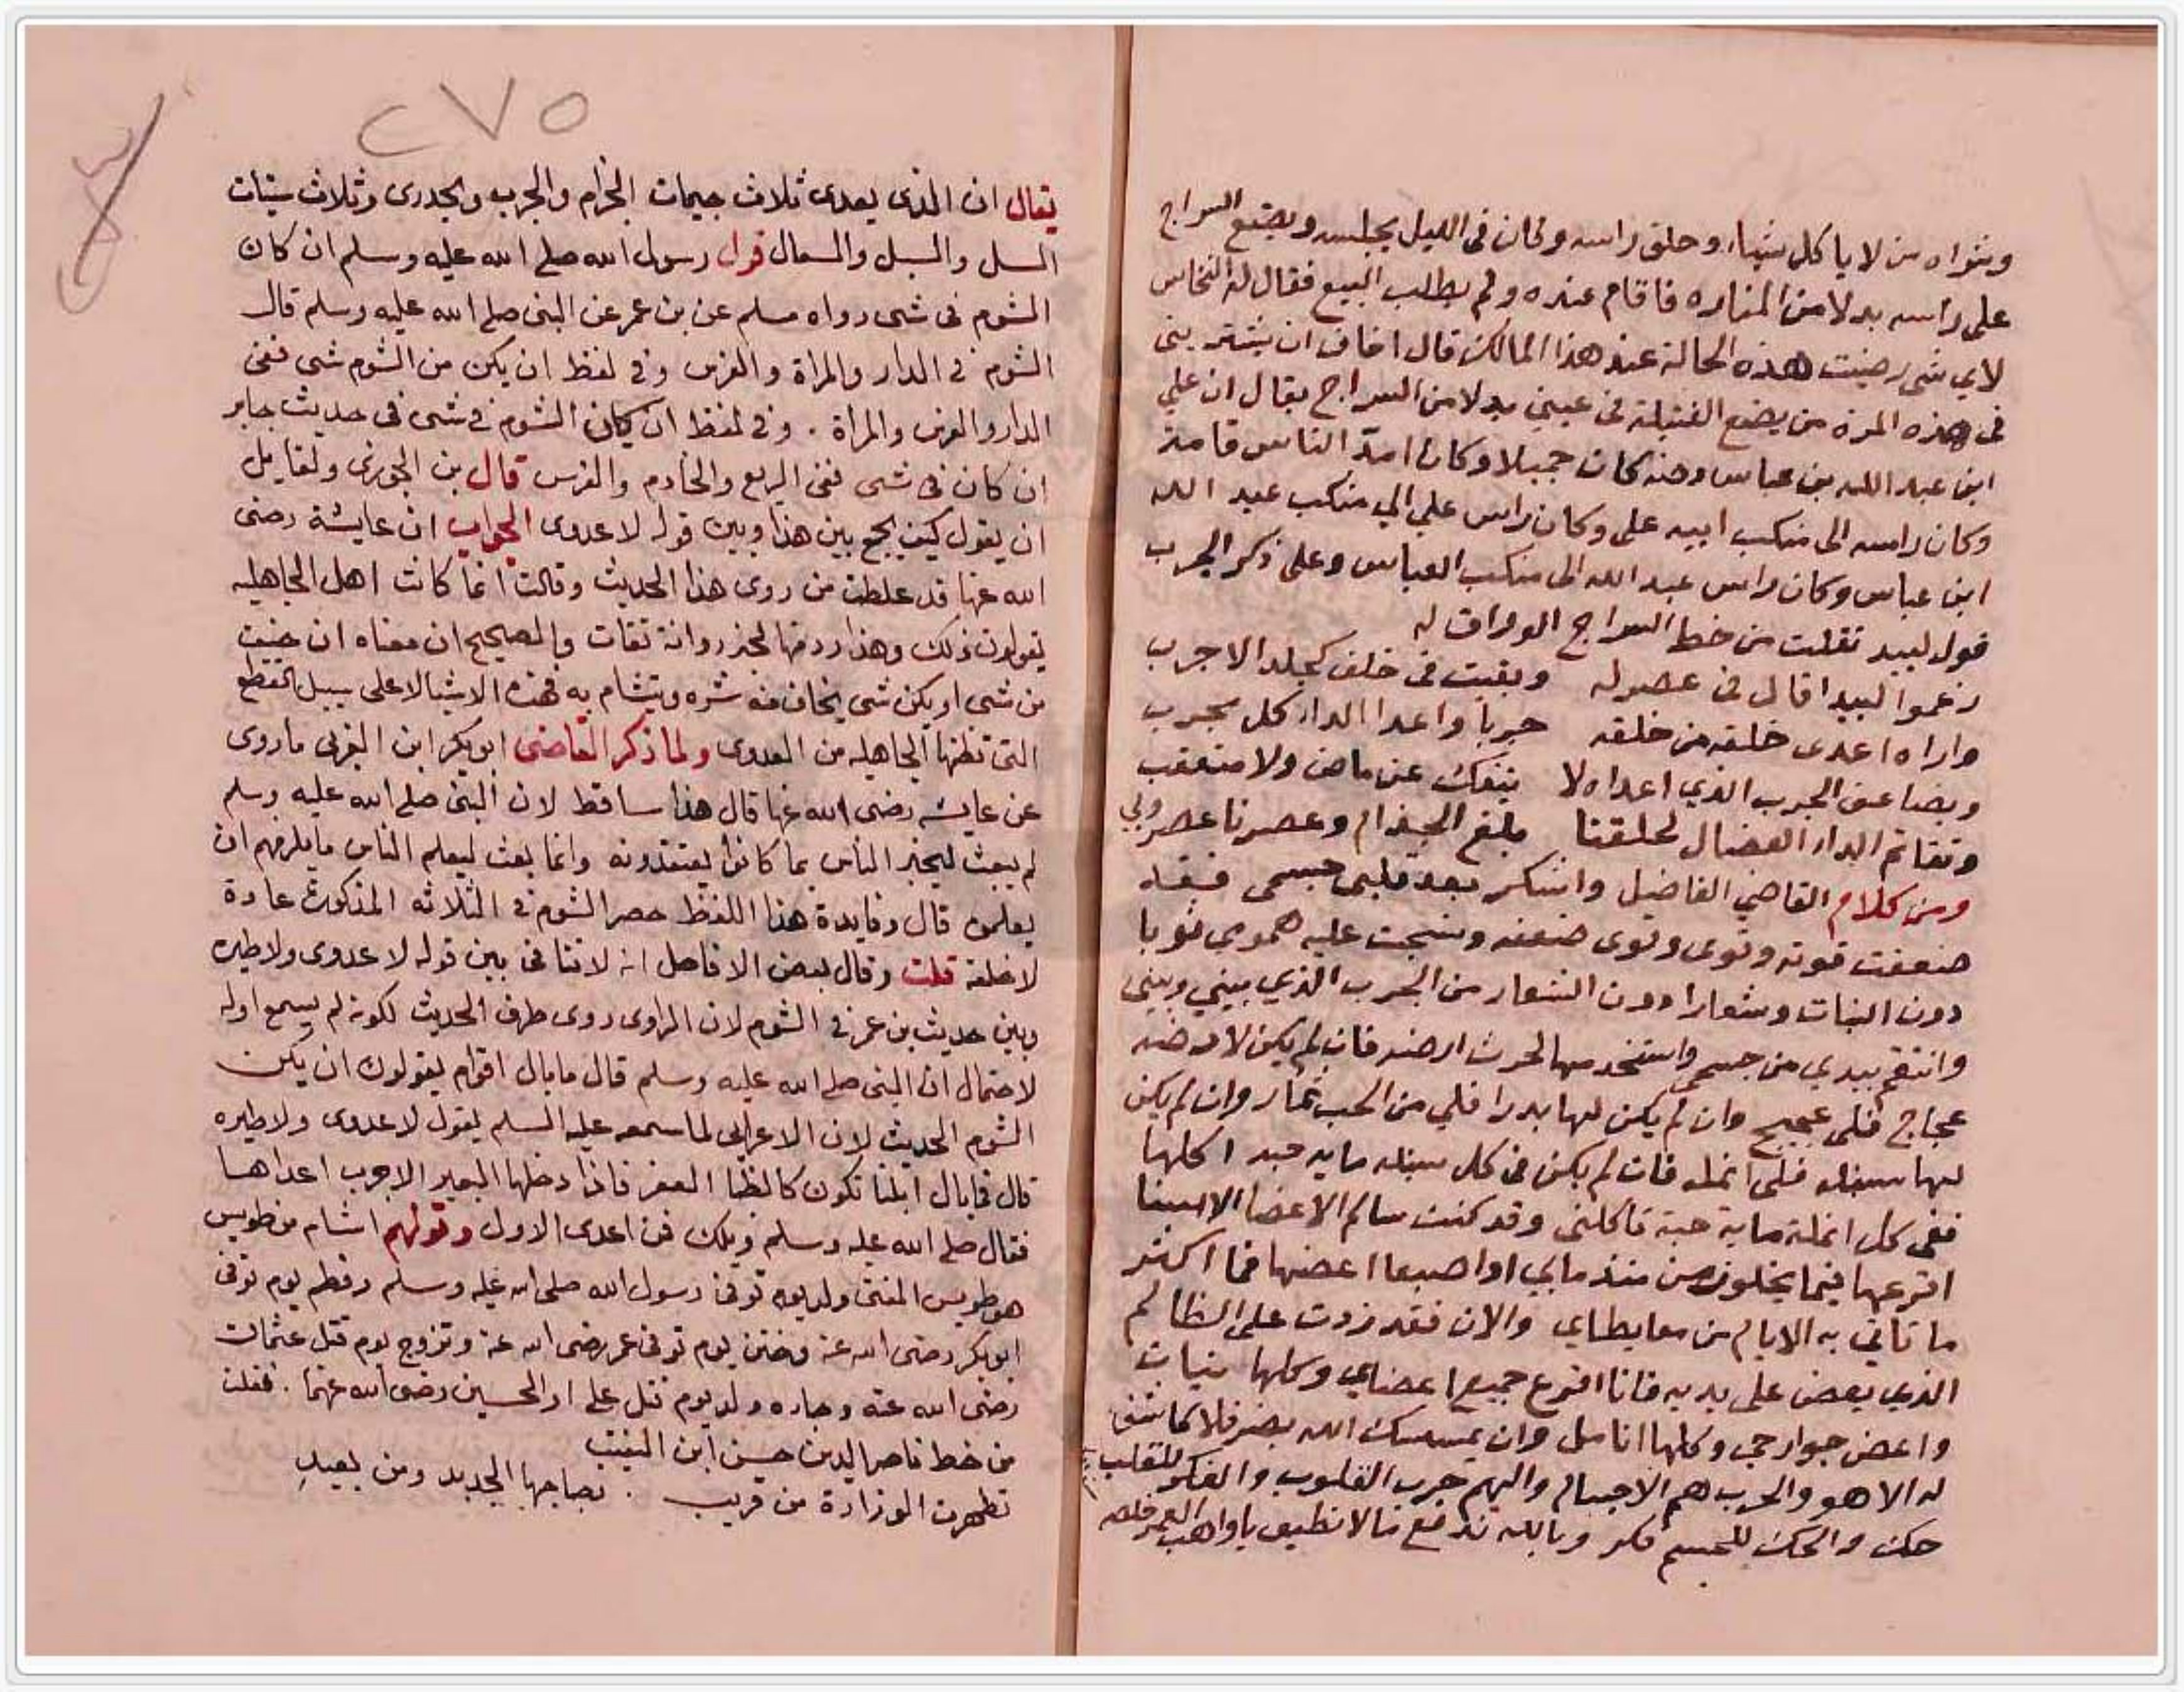 وشراه من لا ياكل شيئا، وحلق راسه وكان فى الليل يجلسه ويضع السراج
على راسه بدلا من المناره فاقام عنده ولم يطلب البيع فقال له النخاس
لاي شى رضيت هذه الحالة عند هذا المالك قال اخاف ان يشتريني
فى هذه المرة من يضع الفتيلة فى عيني بدلا من السراج يقال ان علي
ابن عبد الله بن عباس رضه كان جميلا وكان امد الناس قامة
وكان راسه الى منكب ابيه على وكان راس علي الي منكب عبد الله
ابن عباس وكان راس عبد الله الى منكب العباس وعلى ذكر الجرب
قول لبيد نقلت من خط السراج الوراق له
زعموا لبيدا قال فى عصر له وبقيت فى خلف كجلد الاجرب
واراه اعدى خلقه من خلقه جربا واعدا الدار كل مجرب
ويضاعف الجرب الذي اعداه لا ينفك عن ماض ولا متعقب
وتفاقم الداء العضال لحلقنا مبلغ الجذام وعصرنا عصر وبي
ومن كلام القاضي الفاضل واشكر بعد قلبى جسمى فقد
ضعفت قوته وقوى وقوى ضعفه ونسجت عليه همومى ثوبا
دون الثياب وشعارا دون الشعار من الجرب الذي بيني وبينى
وانتقم بيدي من جسمى واستخدمها لحرث ارضه فان لم يكن لارضه
عجاج فلى عجيج وان لم يكن لها بدرا فلي من الحب ثمار وان لم يكن
لها سنبله فلى انمله فان لم يكن فى كل سنبله ماية حبه اكلها
ففى كل انملة ماية حبة تاكلنى وقد كنت سالم الاعضا الا سنا
اقرعها فيما يخلون من منذ مابي او اصبعا اعضها فما اكثر
ما تاتي به الايام من معايطاي والان فقد زدت على الظالم
الذي يعض على يديه فانا اقرع جميع اعضاي وكلها ثنيات
واعض جوارحى وكلها انامل وان يمسسك الله بضر فلا كاشف
له الا هو والجرب هم الاجسام والهم جرب القلوب والفكر للقلب
حك والحك للجسم فكر وبالله ندفع ما لا نطيق يا واهب العمر خلصه
٢٧٥
يقال ان الذى يعدى ثلاث جيمات الجزام والجرب والجدرى وثلاث سينات
السل والسبل والسعال قول رسول الله صلى الله عليه وسلم ان كان
الشوم فى شى رواه مسلم عن بن عمر عن النبى صلى الله عليه وسلم قال
الشوم فى الدار والمراة والفرس وفى لفظ ان يكن من الشوم شى ففى
الدار والفرس والمراة . وفى لفظ ان كان الشوم فى شى فى حديث جابر
ان كان فى شى ففى الربع والخادم والفرس قال بن الجوزى ولقايل
ان يقول كيف الجمع بين هذا وبين قوله لا عدوى الجواب ان عايشة رضى
الله عنها قد غلطت من روى هذا الحديث وقالت انما كانت اهل الجاهليه
يقولون ذلك وهذا رد منها لخبر رواته ثقات والصحيح ان معناه ان خيفت
من شى او يكن شى يخاف منه شره ويتشام به فهذه الاشيا لا على سبيل القطع
التى تظنها الجاهليه من العدوى ولما ذكر القاضى ابوبكر ابن العربى ما روى
عن عايشه رضى الله عنها قال هذا ساقط لان النبى صلى الله عليه وسلم
لم يبعث ليخبر الناس بما كانوا يعتقدونه وانما بعث ليعلم الناس ما يلزمهم ان
يعلمون قال وفايدة هذا اللفظ حصر الشوم فى الثلاثه المذكورة عادة
لا خلقة قلت وقال بعض الافاضل انه لا تنافى بين قوله لا عدوى ولا طيره
وبين حديث بن عمر فى الشوم لان الراوى روى طرف الحديث لكونه لم يسمع اوله
لاحتمال ان النبى صلى الله عليه وسلم قال ما بال اقوام يقولون ان يكن
الشوم الحديث لان الاعرابى لما سمعه عليه السلم يقول لا عدوى ولا طيره
قال فما بال ابلنا تكون كالظبا العفر فاذا دخلها البعير الاجرب اعداها
فقال صلى الله عليه وسلم ويلك فمن اعدى الاول وقولهم اشام من طويس
هو طويس المغنى ولد يوم توفى رسول الله صلى الله عليه وسلم وفطم يوم توفى
ابوبكر رضى الله عنه وختن يوم توفى عمر رضى الله عنه وتزوج يوم قتل عثمان
رضى الله عنه وجاره ولد يوم قتل على او الحسين رضى الله عنهما . نقلت
من خط ناصر الدين حسن ابن النقيب
تطهرت الوزارة من قريب . بصاحبها الجديد ومن بعيد